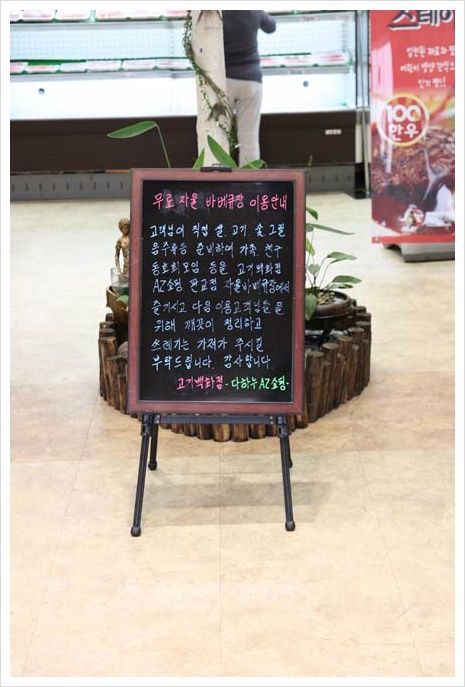 무료 자율 바베큐장 이용안내
고객님이 직접 쌀, 고기, 숯, 그릴
음주류등 준비하여 가족, 친구
동호회모임 등을 고기백화점
AZ쇼핑 판교점 자율바베큐장에서
즐기시고 다음 이용고객님들을
위해 깨끗이 정리하고
쓰레기는 가져가 주시길
부탁드립니다. 감사합니다.
고기백화점 - 다하누AZ쇼핑-
스테이
100
만우